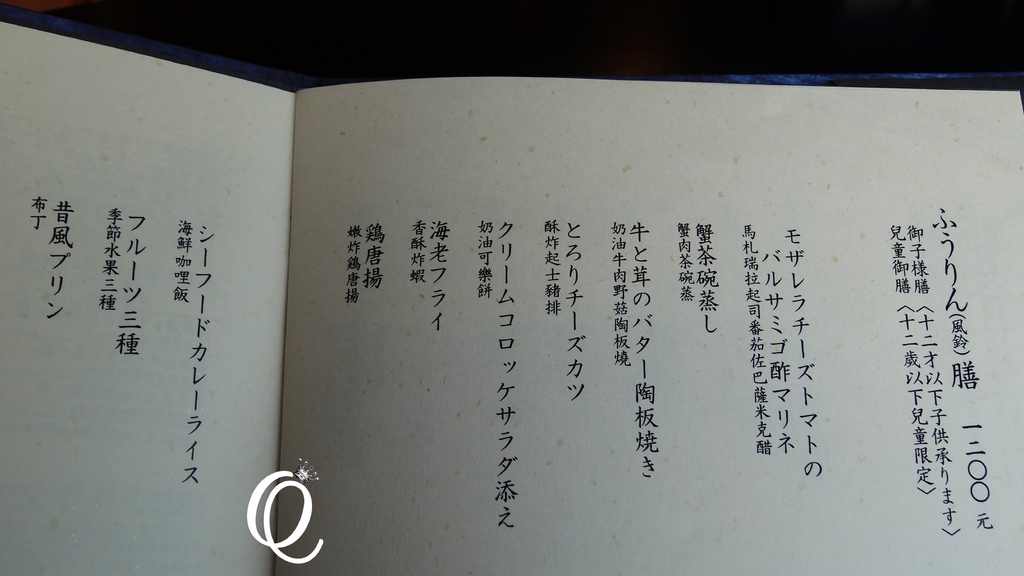 ふうりん(風鈴)膳 一二〇〇元
御子様膳〈十二才以下子供承ります〉
兒童御膳〈十二歲以下兒童限定〉
モザレラチーズトマトの
バルサミゴ酢マリネ
馬札瑞拉起司番茄佐巴薩米克醋
蟹茶碗蒸し
蟹肉茶碗蒸
牛と茸のバター陶板焼き
奶油牛肉野菇陶板燒
とろりチーズカツ
酥炸起士豬排
クリームコロッケサラダ添え
奶油可樂餅
海老フライ
香酥炸蝦
鶏唐揚
嫩炸鷄唐揚
シーフードカレーライス
海鮮咖哩飯
フルーツ三種
季節水果三種
昔風プリン
布丁
Q